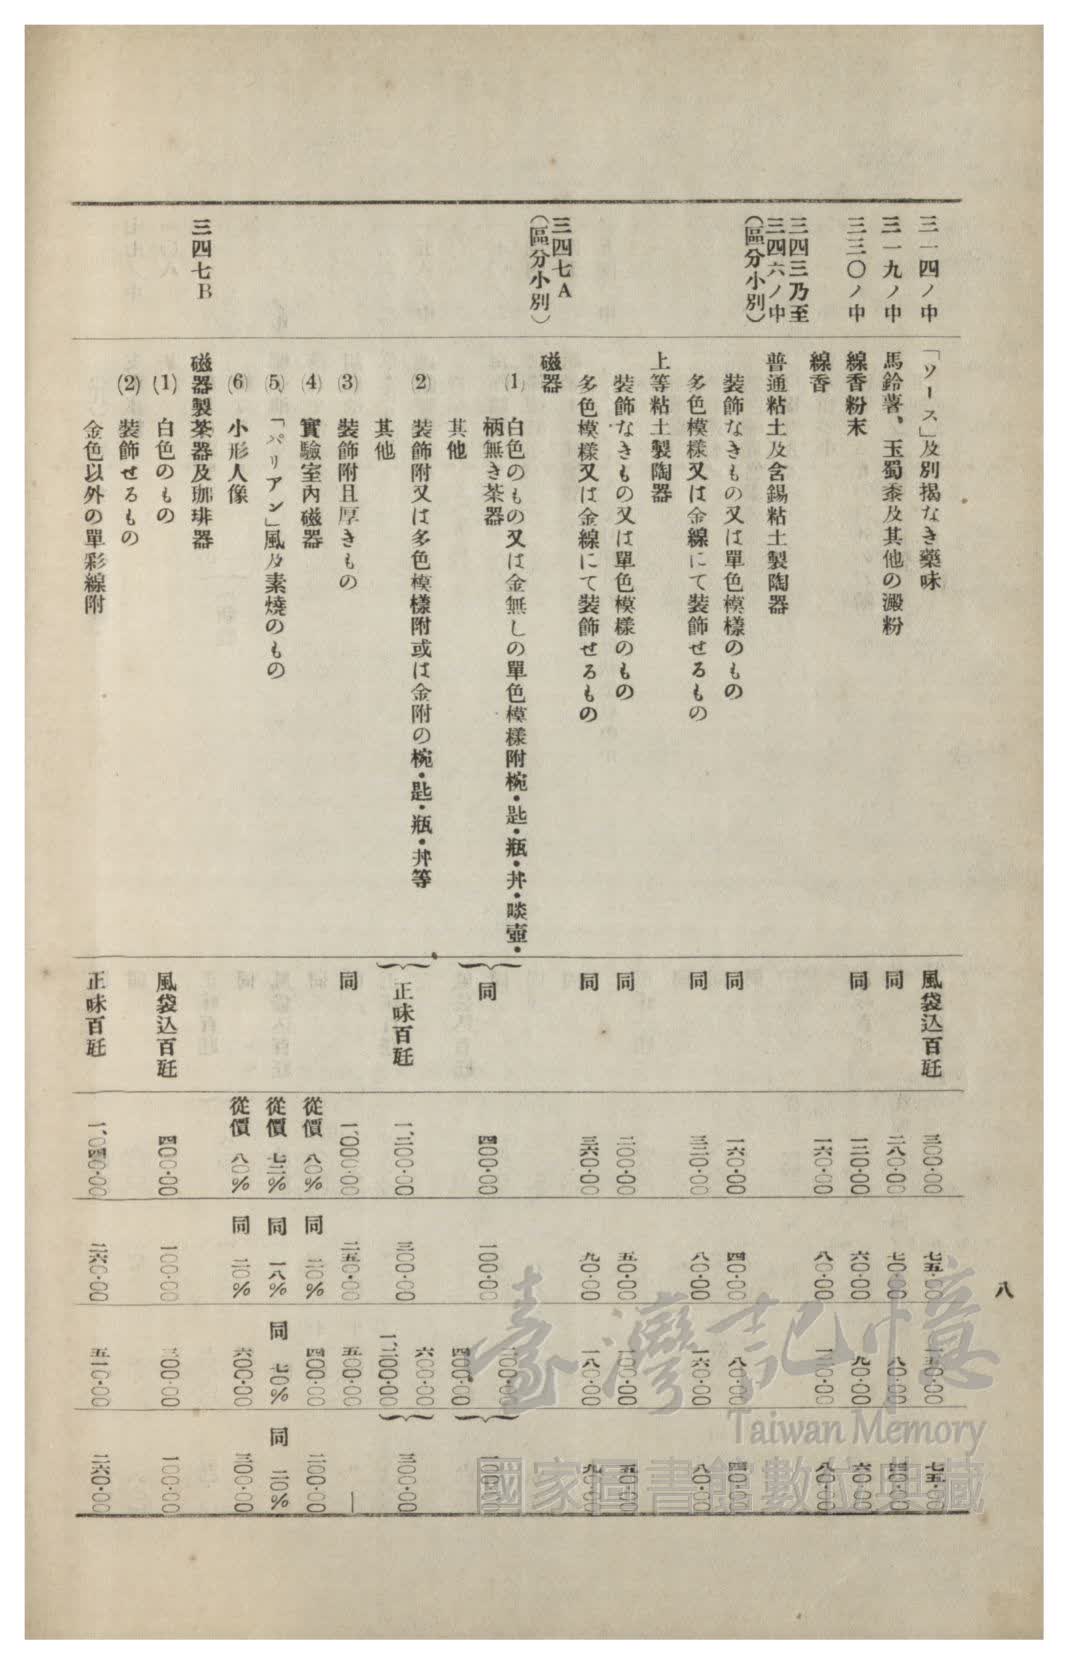 八
三一四ノ中 「ソース」及別揭なき藥味 風袋込百瓩 三〇〇・〇〇 七五・〇〇 一五〇・〇〇 七五・〇〇
三一九ノ中 馬鈴薯、玉蜀黍及其他の澱粉 同 二八〇・〇〇 七〇・〇〇 八〇・〇〇 四〇・〇〇
三三〇ノ中 線香粉末 同 一二〇・〇〇 六〇・〇〇 九〇・〇〇 六〇・〇〇
線香 一六〇・〇〇 八〇・〇〇 一二〇・〇〇 八〇・〇〇
三四三乃至
三四六ノ中 普通粘土及含錫粘土製陶器
(區分小別) 裝飾なきもの又は單色模樣のもの 同 一六〇・〇〇 四〇・〇〇 八〇・〇〇 四〇・〇〇
多色模樣又は金線にて裝飾せるもの 同 三二〇・〇〇 八〇・〇〇 一六〇・〇〇 八〇・〇〇
上等粘土製陶器
裝飾なきもの又は單色模樣のもの 同 二〇〇・〇〇 五〇・〇〇 一〇〇・〇〇 五〇・〇〇
多色模樣又は金線にて裝飾せるもの 同 三六〇・〇〇 九〇・〇〇 一八〇・〇〇 九〇・〇〇
三四七A 磁器
(區分小別)
(1) 白色のもの又は金無しの單色模樣附椀・匙・瓶・丼・啖壺・
柄無き茶器 同 四〇〇・〇〇 一〇〇・〇〇 二〇〇・〇〇 一〇〇・〇〇
其他 四〇〇・〇〇
(2) 裝飾附又は多色模樣附或は金附の椀・匙・瓶・丼等 正味百瓩 一、二〇〇・〇〇 三〇〇・〇〇 六〇〇・〇〇 三〇〇・〇〇
其他 一、二〇〇・〇〇
(3) 裝飾附且厚きもの 同 一、〇〇〇・〇〇 二五〇・〇〇 五〇〇・〇〇 ―
(4) 實驗室內磁器 從價 八〇% 同 二〇% 四〇〇・〇〇 二〇〇・〇〇
(5) 「パリアン」風及素燒のもの 從價 七二% 同 一八% 同 七〇% 同 二〇%
(6) 小形人像 從價 八〇% 同 二〇% 六〇〇・〇〇 三〇〇・〇〇
三四七B 磁器製茶器及珈琲器
(1) 白色のもの 風袋込百瓩 四〇〇・〇〇 一〇〇・〇〇 三〇〇・〇〇 一〇〇・〇〇
(2) 裝飾せるもの
金色以外の單彩線附 正味百瓩 一、〇四〇・〇〇 二六〇・〇〇 五一〇・〇〇 二六〇・〇〇
臺灣記憶
Taiwan Memory
國家圖書館數位典藏